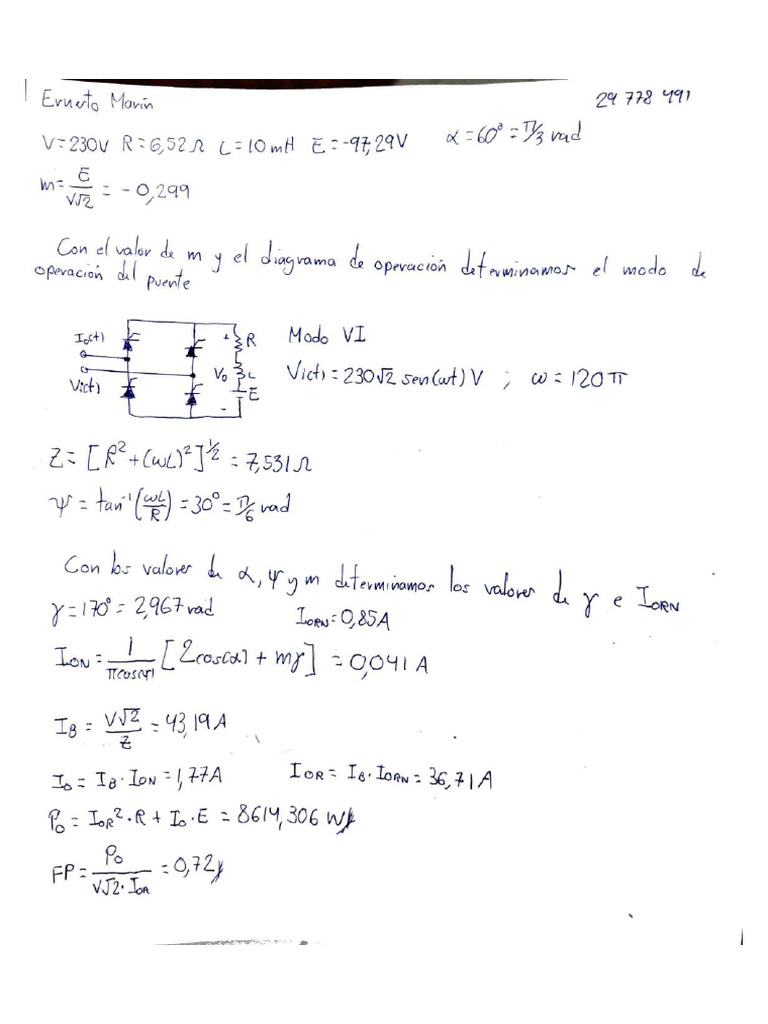 Ernesto Marín 29 778 491
V=230V R=6,52Ω L=10mH E=-97,29V α=60°=π/3 rad
m=E/V√2 = -0,299
Con el valor de m y el diagrama de operación determinamos el modo de
operación del puente
Io(t) + R Modo VI
Vo L Vi(t)=230√2 sen(ωt) V ; ω=120π
Vi(t) - E
Z=[R²+(ωL)²]^1/2=7,531Ω
Ψ=tan⁻¹(ωL/R)=30°=π/6 rad
Con los valores de α, Ψ y m determinamos los valores de γ e IORN
γ=170°=2,967 rad IORN=0,85A
ION=1/πcos(Ψ) [2cos(α)+mγ]=0,041 A
IB=V√2/Z=43,19A
Io=IB·ION=1,77A IOR=IB·IORN=36,71A
Po=IOR²·R+Io·E=8614,306 W
FP=Po/V√2·IOR=0,72